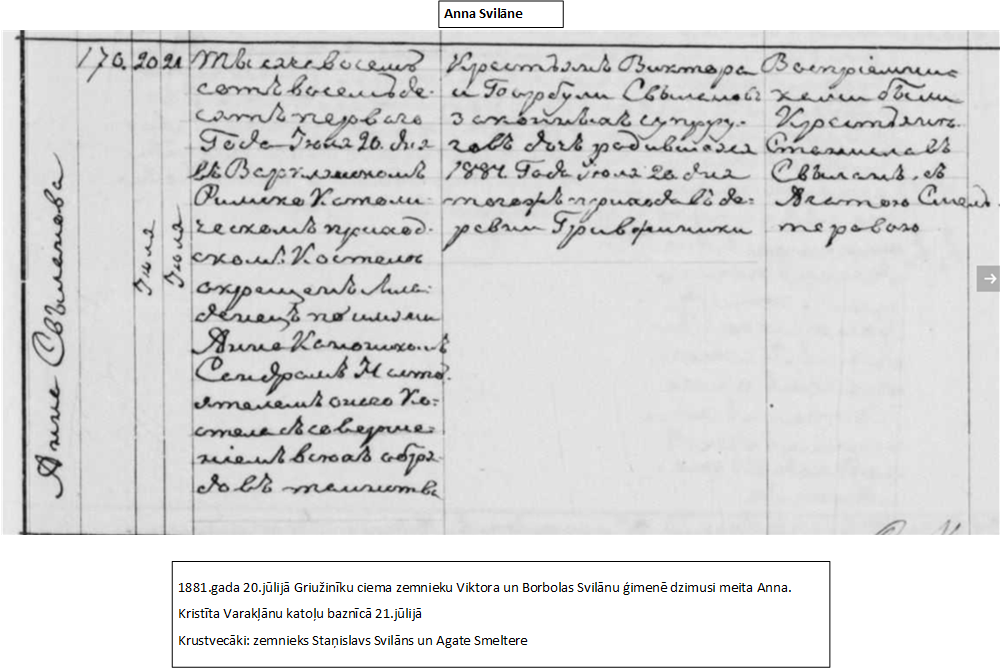 Anna Svilāne
Анна Свыланова
170.
20 21
Іюля
Іюля
Тысяча восемь
сотъ восемьде-
сятъ перваго
Года Іюля 20. дня
въ Варклянскомъ
Римско Католи-
ческомъ приход-
скомъ Костелѣ
окрещенъ мла-
денецъ по имени
Анна Каноникомъ
настоя-
ятелемъ онаго Ко-
стела съ соверше-
ніемъ всѣхъ обря-
довъ таинства
Крестьянъ Виктора
и Борбули Свылановъ
законныхъ супру-
говъ дочь родившаяся
1881. Года Іюля 20 дня
тогоже прихода въ де-
ревни
Воспріемни-
ками были
Крестьянинъ
Станиславъ
Свыланъ съ
Агатою Смель-
теровою
1881.gada 20.jūlijā Griužinīku ciema zemnieku Viktora un Borbolas Svilānu ģimenē dzimusi meita Anna.
Kristīta Varakļānu katoļu baznīcā 21.jūlijā
Krustvecāki: zemnieks Staņislavs Svilāns un Agate Smeltere